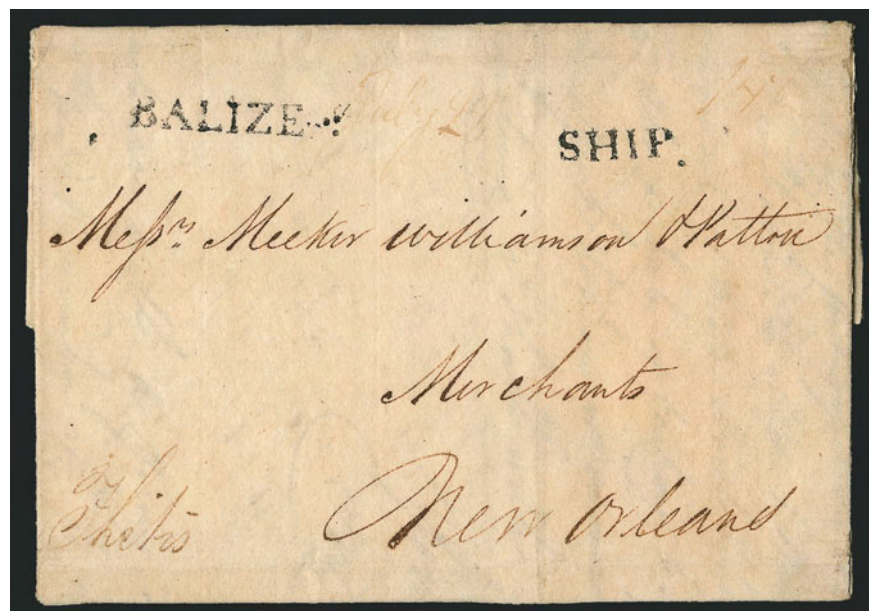 BALIZE
July 25
14
SHIP.
Messrs Meeker Williamson & Patton
Merchants
New Orleans
Thetis